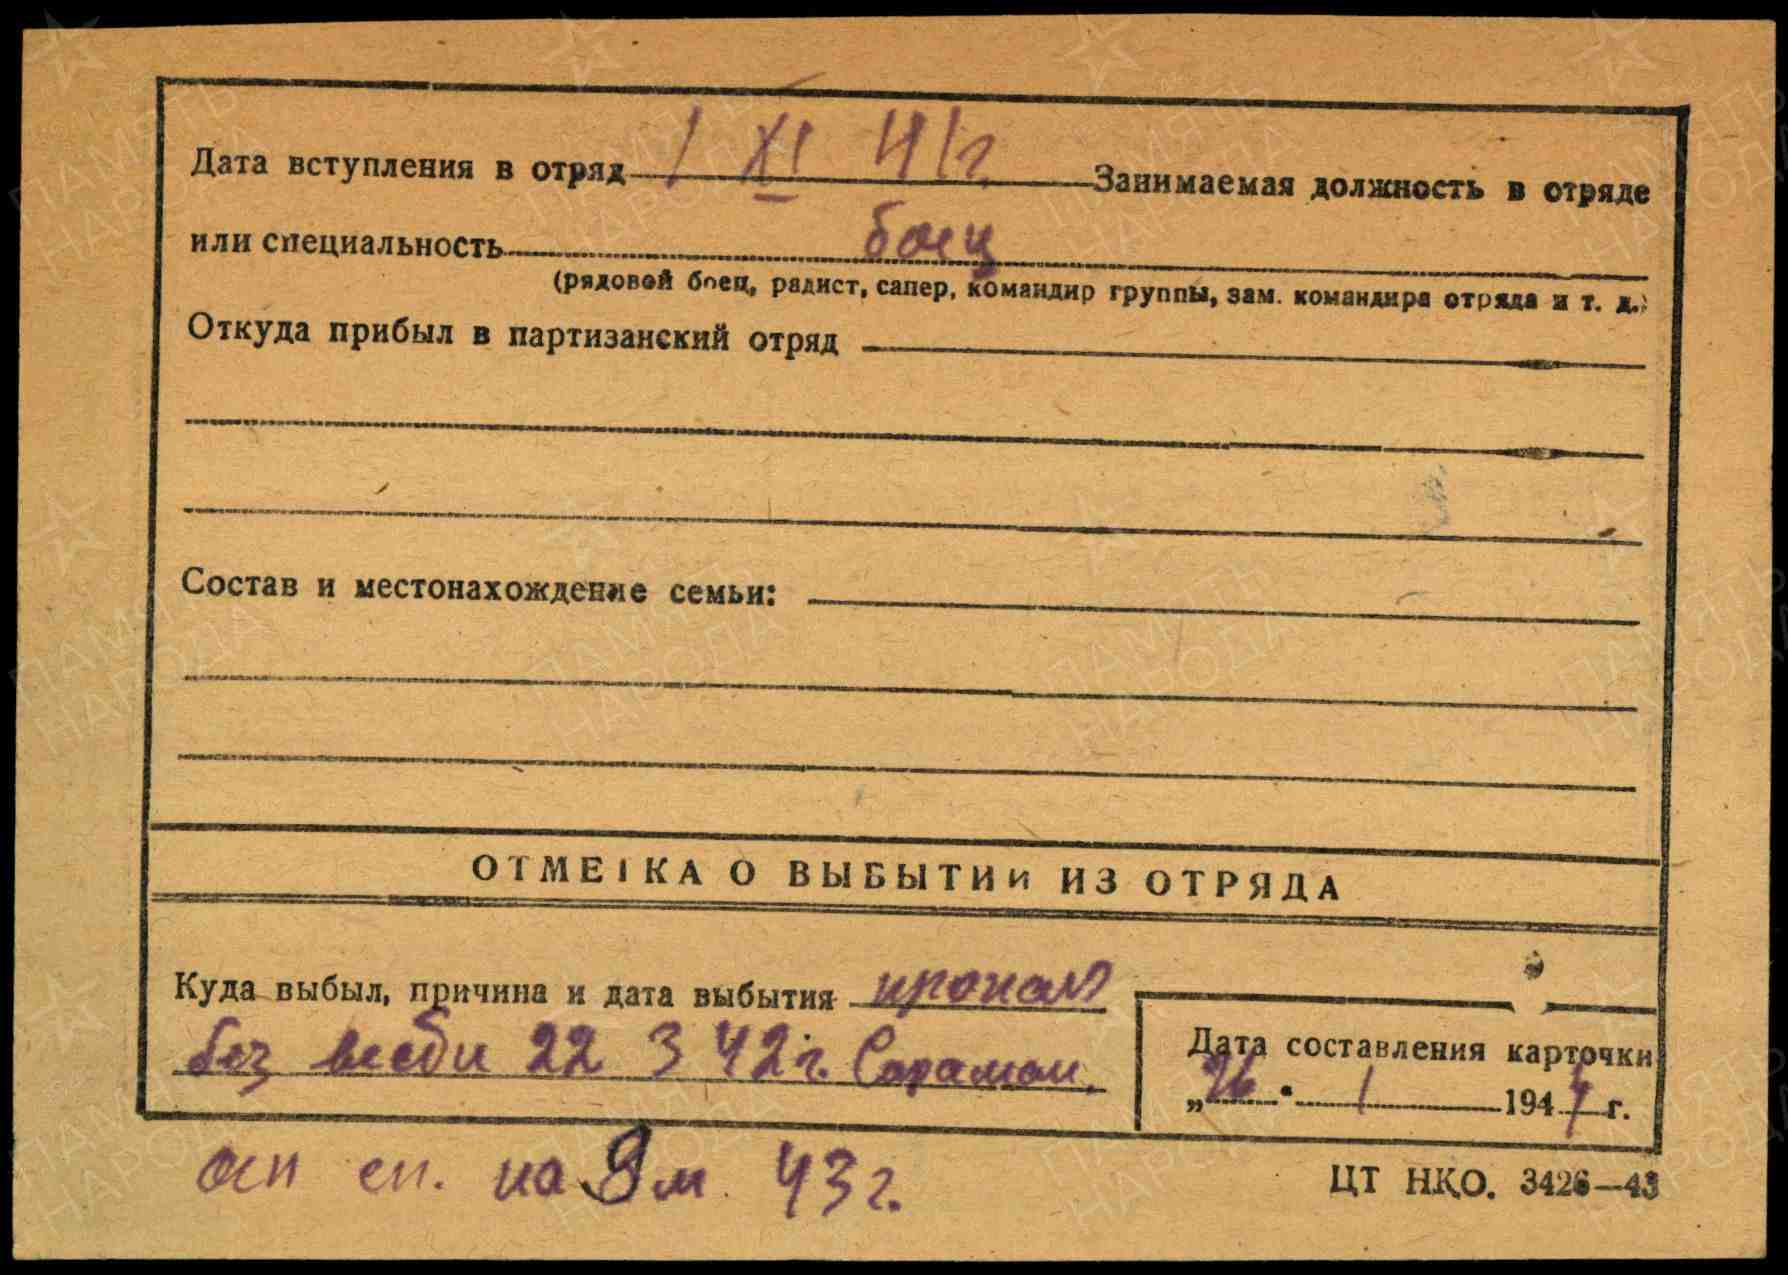 Дата вступления в отряд 1 XI 41г. Занимаемая должность в отряде
или специальность боец
(рядовой боец, радист, сапер, командир группы, зам. командира отряда и т. д.)
Откуда прибыл в партизанский отряд
Состав и местонахождение семьи:
ОТМЕТКА О ВЫБЫТИИ ИЗ ОТРЯДА
Куда выбыл, причина и дата выбытия пропал
без вести 22 3 42г.
Дата составления карточки
„26" 1 1944 г.
осн сп. на 9 м 43г.
ЦТ НКО. 3426—43
ПАМЯТЬ
НАРОДА